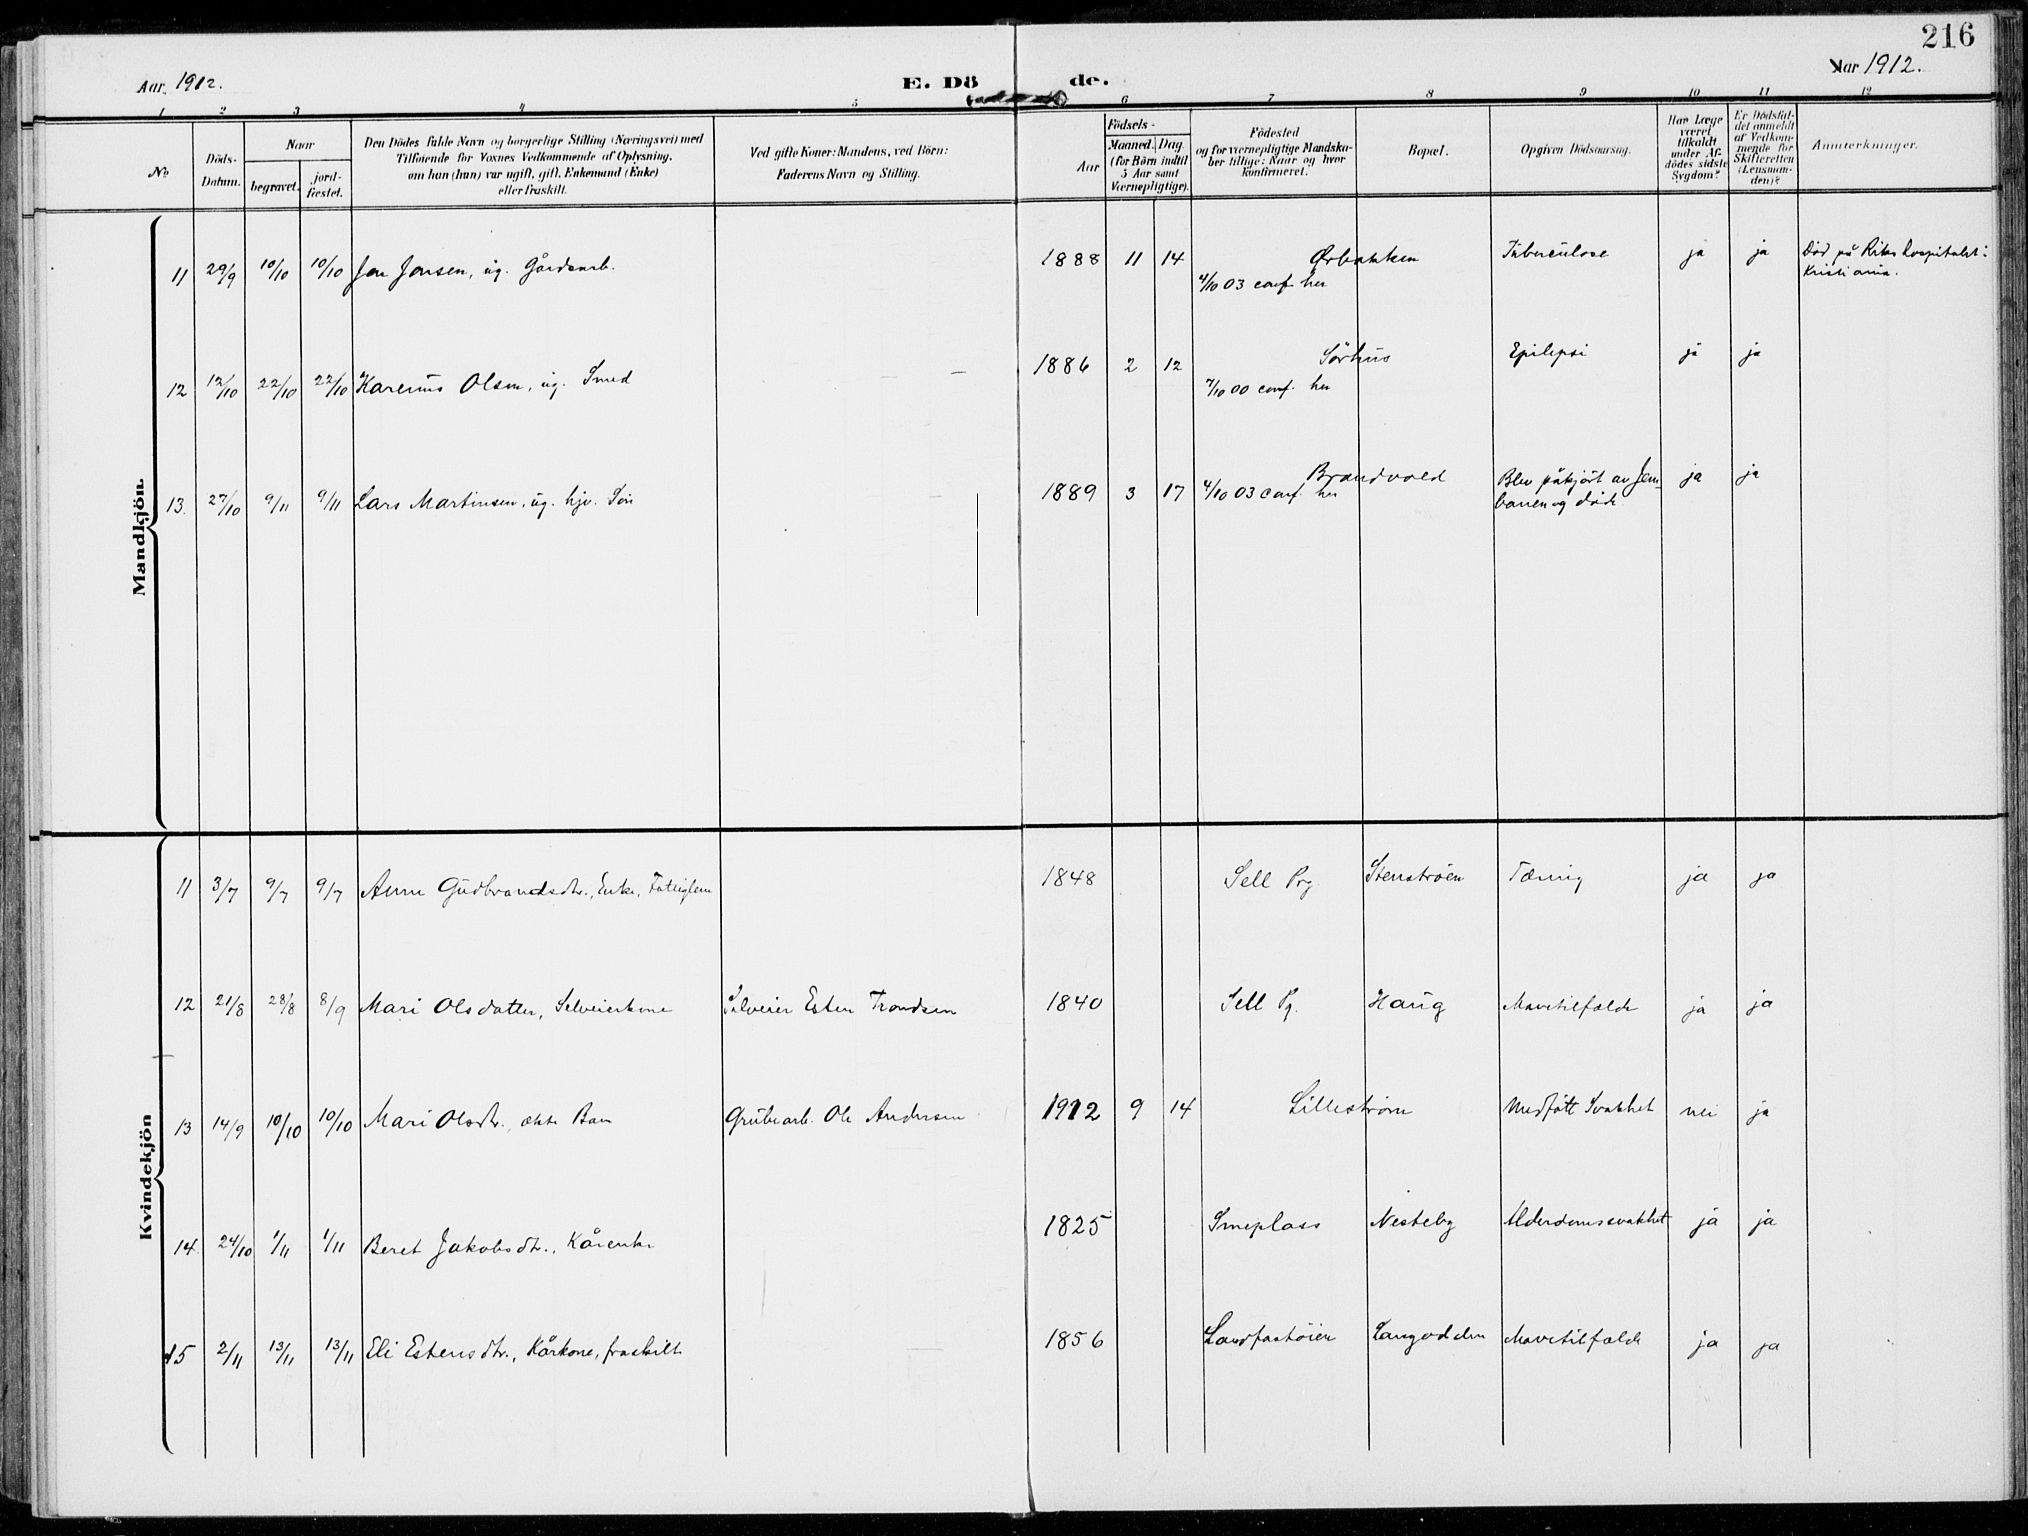 216
Aar 1912. E. Dö de. Aar 1912.
1 2 3 4 5 6 7 8 9 10 11 12
No
Döds-
Datum.
Naar
begravet.
jord-
fæstet.
Den Dödes fulde Navn og borgerlige Stilling (Næringsvei) med
Tilföiende for Voxnes Vedkommende af Oplysning,
om han (hun) var ugift, gift, Enkemand (Enke)
eller fraskilt.
Ved gifte Koner: Mandens, ved Börn:
Faderens Navn og Stilling.
Födsels-
Aar
Maaned. Dag.
(for Börn indtil
5 Aar samt
Værnepligtige).
Födested
og for værnepligtige Mandska-
ber tillige: Naar og hvor
konfirmeret.
Bopæl.
Opgiven Dödsaarsag.
Har Læge
været
tilkaldt
under Af-
dödes sidste
Sygdom?
Er Dödsfal-
det anmeldt
af Vedkom-
mende for
Skifteretten
(Lensman-
den)?
Anmerkninger.
Mandkjön.
11 29/9 10/10 10/10 Jon Jonsen, ug. Gårdarb. 1888 11 14 Ørbakken Tuberculose ja ja Död på Rikshospitalet i
4/10 03 conf. her Kristiania.
12 12/10 22/10 22/10 Karenus Olsen, ug. Smed 1886 2 12 Sörhus Epilepsi ja ja
7/10 00 conf. her
13. 27/10 9/11 9/11 Lars Martinsen, ug. hjv. Sön 1889 3 17 4/10 03 conf. her Brandvold Blev påkjört av Jern- ja ja
banen og döde
Kvindekjön
11 3/7 9/7 9/7 Anne Gudbrandsdtr., Enke, Fattiglem 1848 Sell Prg Stenströen Tæring ja ja
12 21/8 28/8 8/9 Mari Olsdatter, Selveierkone Selveier Esten Trondsen 1840 Sell Pg. Haug Mavetilfælde ja ja
13 14/9 10/10 10/10 Mari Olsdtr., ekte Barn Grubearb. Ole Andersen 1912 9 14 Lilleström Medfött Svakhet nei ja
14. 24/10 1/11 1/11 Beret Jakobsdtr., Kårenke 1825 Smeplass Nesteby Alderdomssvakhet ja ja
15 2/11 13/11 13/11 Eli Estensdtr., Kårkone, fraskilt 1856 Landfastöien Langodden Mavetilfælde ja ja